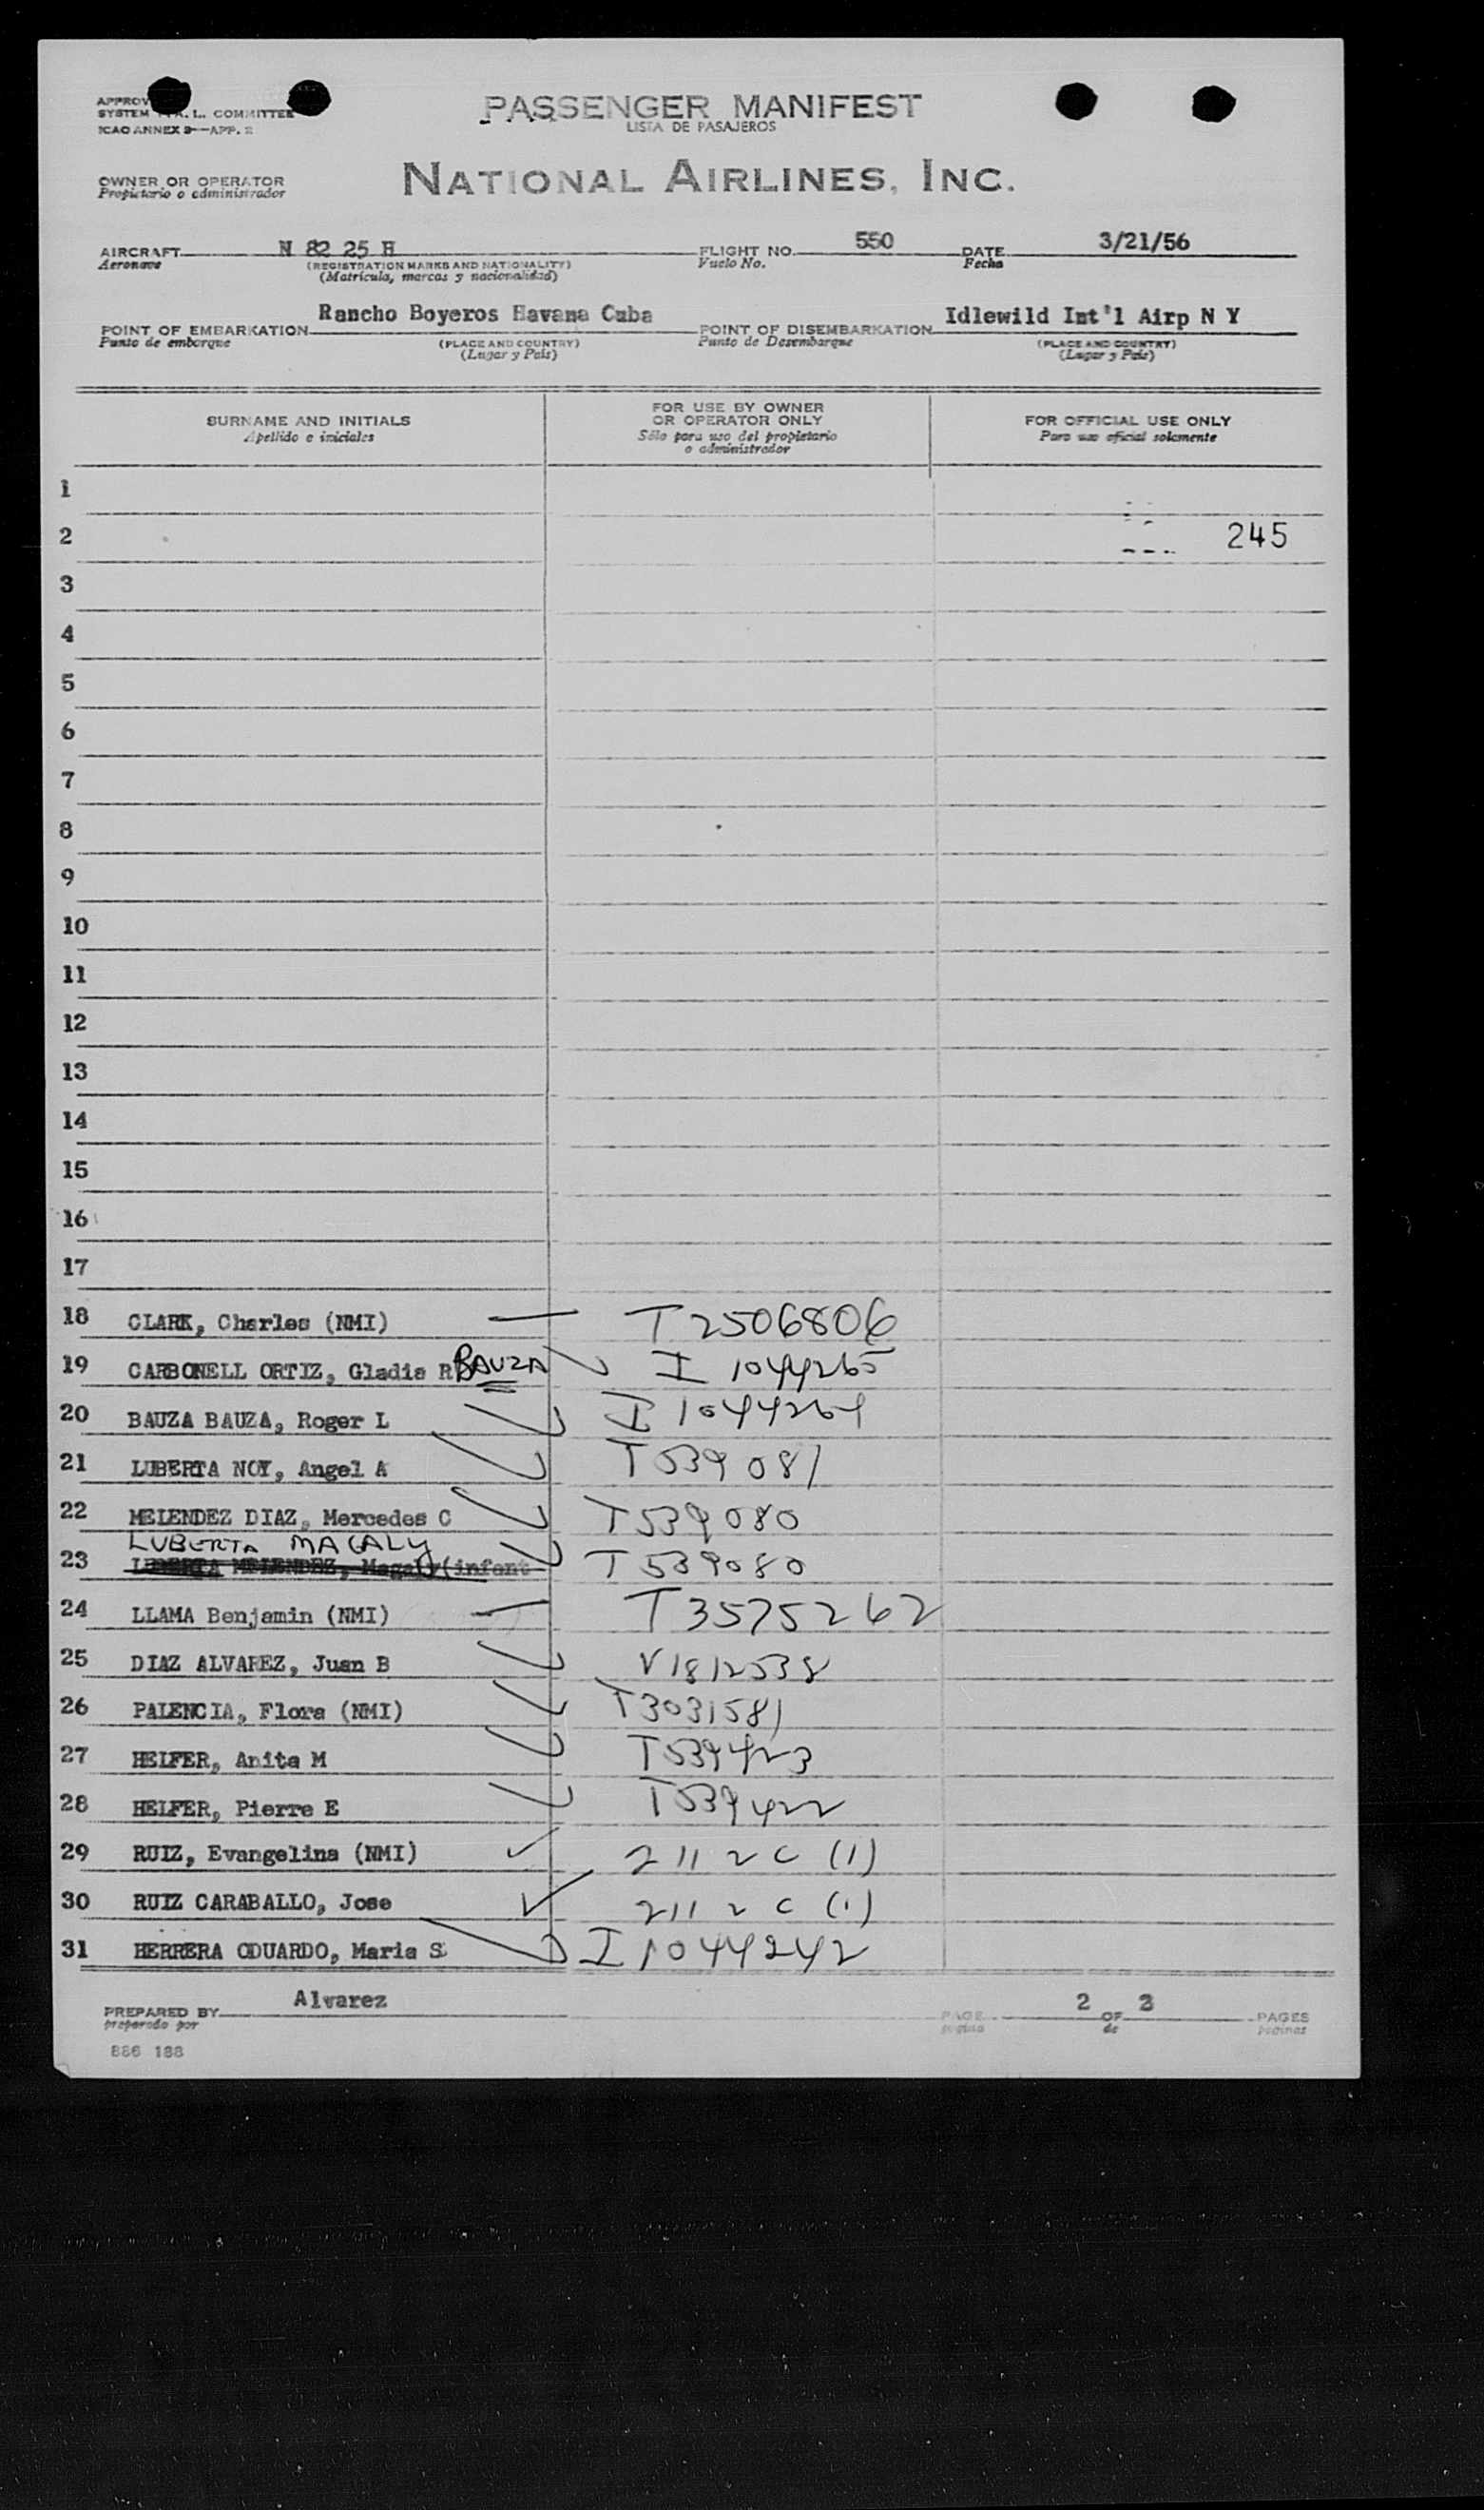 APPROV
SYSTEM F.A.L. COMMITTEE
ICAO ANNEX 9—APP. 2
PASSENGER MANIFEST
LISTA DE PASAJEROS
OWNER OR OPERATOR
Propietario o administrador
NATIONAL AIRLINES, INC.
AIRCRAFT N 82 25 H FLIGHT NO. 550 DATE 3/21/56
Aeronave (REGISTRATION MARKS AND NATIONALITY) Vuelo No. Fecha
(Matrícula, marcas y nacionalidad)
POINT OF EMBARKATION Rancho Boyeros Havana Cuba POINT OF DISEMBARKATION Idlewild Int'l Airp N Y
Punto de embarque (PLACE AND COUNTRY) Punto de Desembarque (PLACE AND COUNTRY)
(Lugar y País) (Lugar y País)
SURNAME AND INITIALS
Apellido e iniciales
FOR USE BY OWNER
OR OPERATOR ONLY
Sólo para uso del propietario
o administrador
FOR OFFICIAL USE ONLY
Para uso oficial solamente
1
2 245
3
4
5
6
7
8
9
10
11
12
13
14
15
16
17
18 CLARK, Charles (NMI) — T2506806
19 CARBONELL ORTIZ, Gladis R BAUZA I 1044265
20 BAUZA BAUZA, Roger L I 1044264
21 LUBERTA NOY, Angel A T539081
22 MELENDEZ DIAZ, Mercedes C T539080
LUBERTA MAGALY
23 LUBERTA MELENDEZ, Magaly(infant T539080
24 LLAMA Benjamin (NMI) — T3575262
25 DIAZ ALVAREZ, Juan B V1812538
26 PALENCIA, Flora (NMI) T3031581
27 HELFER, Anita M T539423
28 HELFER, Pierre E T539422
29 RUIZ, Evangelina (NMI) ✓ 211 2 C (1)
30 RUIZ CARABALLO, Jose ✓ 211 2 C (1)
31 HERRERA ODUARDO, Maria S I 1044242
PREPARED BY Alvarez PAGE 2 OF 3 PAGES
preparado por pagina de paginas
886 188